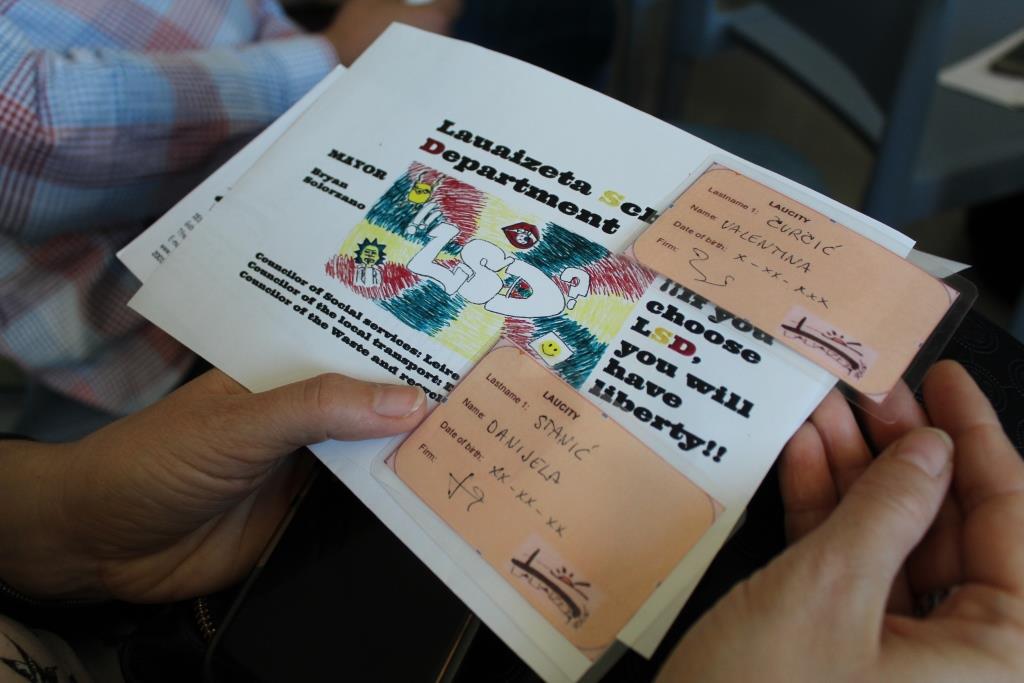 Lauaizeta Sch
Department
MAYOR
Bryan
Solorzano
LSD
Councilor of Social services: Leire
Councilor of the local transport:
Councilor of the Waste and
!!If you
choose
LSD,
you will
have
liberty!!
LAUCITY
Lastname 1: ČURČIĆ
Name: VALENTINA
Date of birth: X-XX-XXX
Firm:
LAUCITY
Lastname 1: STANIĆ
Name: DANIJELA
Date of birth: XX-XX-XX
Firm: